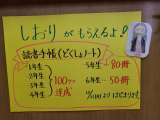 しおりがもらえるよ!
読書手帳(どくしょノート)
1年生
2年生
3年生
4年生
100さつ
達成
5年生…80冊
6年生…50冊